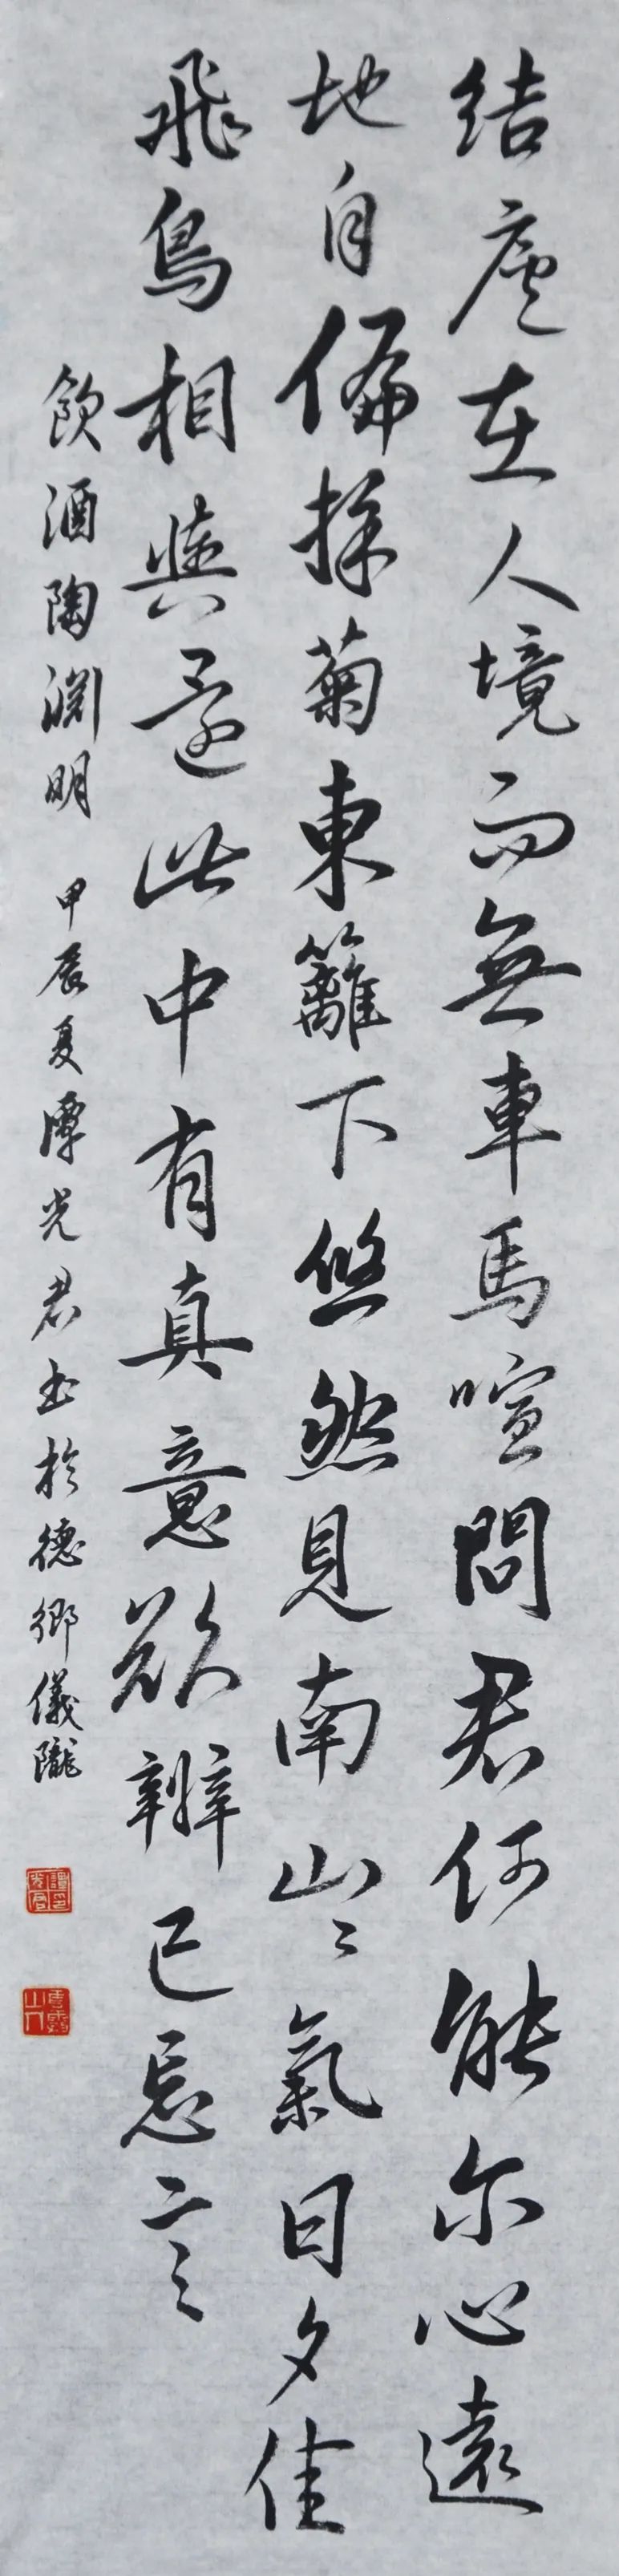 结廬在人境而無車馬喧問君何能尔心遠
地自偏採菊東籬下悠然見南山〻氣日夕佳
飛鳥相與還此中有真意欲辨已忘言
飲酒陶淵明 甲辰夏潭光君书於德鄉儀隴